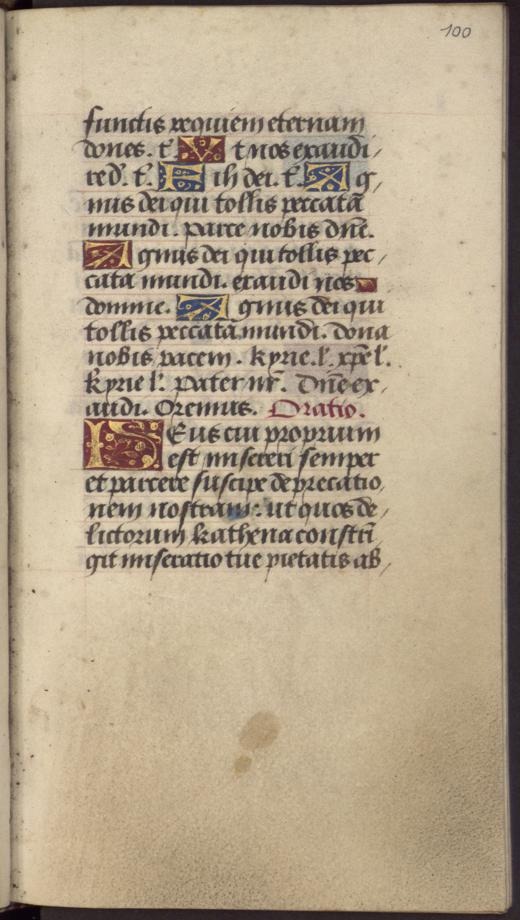 100
functis requiem eternam
dones. t̄. Ut nos exaudi/
re d̄. t̄. Fili dei. t̄. Ag/
nus dei qui tollis peccata
mundi. parce nobis dn̄e.
Agnus dei qui tollis pec/
cata mundi. exaudi nos
domine. Agnus dei qui
tollis peccata mundi. dona
nobis pacem. kyrie.l'. xp̄e l'.
kyrie l'. pater nr̄. Dn̄e ex/
audi. Oremus. Oratio.
Deus cui proprium
est misereri semper
et parcere suscipe deprecatio/
nem nostram: ut quos de/
lictorum kathena constri/
git miseratio tue pietatis ab/